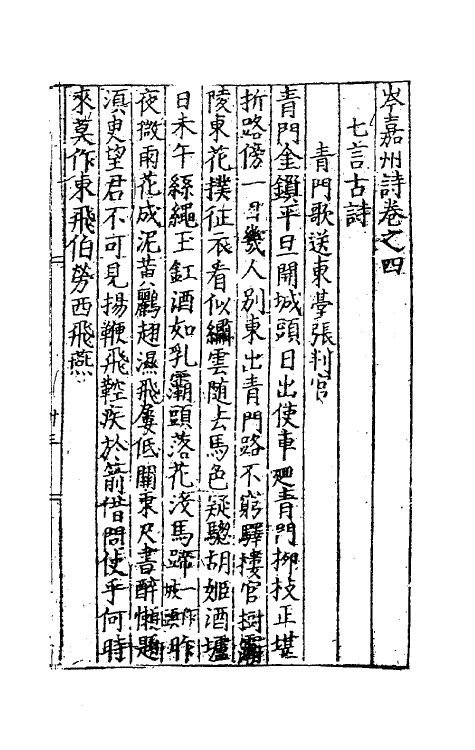 岑嘉州詩卷之四
七言古詩
青門歌送東臺張判官
青門金鎖平旦開城頭日出使車廻青門柳枝正堪
折路傍一日幾人別東出青門路不窮驛樓官樹灞
陵東花撲征衣看似繡雲随去馬色疑驄胡姬酒壚
日未午絲繩玉缸酒如乳灞頭落花没馬蹄一作城頭昨
夜微雨花成泥黄鸝翅濕飛屢低關東尺書醉懶題
湏㬰望君不可見揚鞭飛鞚疾於箭借問使乎何時
來莫作東飛伯勞西飛燕